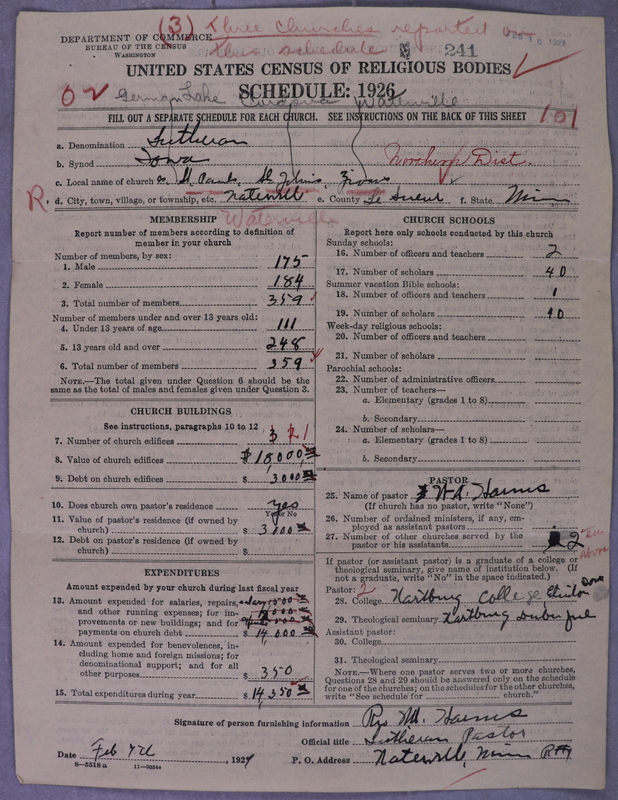 (3) Three Churches reported on
this schedule
DEPARTMENT OF COMMERCE
BUREAU OF THE CENSUS
WASHINGTON
241
UNITED STATES CENSUS OF RELIGIOUS BODIES
SCHEDULE: 1926
German Lake Cordova Waterville
FILL OUT A SEPARATE SCHEDULE FOR EACH CHURCH. SEE INSTRUCTIONS ON THE BACK OF THIS SHEET
101
a. Denomination Lutheran
b. Synod Iowa
Dist.
c. Local name of church St Pauls, St Johns, Zions
R. d. City, town, village, or township, etc. Waterville e. County Le Sueur f. State Minn
Waterville
MEMBERSHIP
Report number of members according to definition of
member in your church
Number of members, by sex:
1. Male 175
2. Female 184
3. Total number of members 359
Number of members under and over 13 years old:
4. Under 13 years of age 111
5. 13 years old and over 248
6. Total number of members 359
NOTE.—The total given under Question 6 should be the
same as the total of males and females given under Question 3.
CHURCH BUILDINGS
See instructions, paragraphs 10 to 12
7. Number of church edifices 1
8. Value of church edifices $18,000
9. Debt on church edifices $ 3000
10. Does church own pastor's residence yes
Yes or No
11. Value of pastor's residence (if owned by
church) $ 3000
12. Debt on pastor's residence (if owned by
church) $
EXPENDITURES
Amount expended by your church during last fiscal year
13. Amount expended for salaries, repairs,
and other running expenses; for im-
provements or new buildings; and for
payments on church debt $ 14,000
14. Amount expended for benevolences, in-
cluding home and foreign missions; for
denominational support; and for all
other purposes $ 350
15. Total expenditures during year $14,350
CHURCH SCHOOLS
Report here only schools conducted by this church
Sunday schools:
16. Number of officers and teachers 2
17. Number of scholars 40
Summer vacation Bible schools:
18. Number of officers and teachers 1
19. Number of scholars 40
Week-day religious schools:
20. Number of officers and teachers
21. Number of scholars
Parochial schools:
22. Number of administrative officers
23. Number of teachers—
a. Elementary (grades 1 to 8)
b. Secondary
24. Number of scholars—
a. Elementary (grades 1 to 8)
b. Secondary
PASTOR
25. Name of pastor Harms
(If church has no pastor, write "None")
26. Number of ordained ministers, if any, em-
ployed as assistant pastors
27. Number of other churches served by the
pastor or his assistants 2
If pastor (or assistant pastor) is a graduate of a college or
theological seminary, give name of institution below. (If
not a graduate, write "No" in the space indicated.)
Pastor:
28. College Wartburg College, Clinton Iowa
29. Theological seminary Wartburg Dubuque
Assistant pastor:
30. College
31. Theological seminary
NOTE.—Where one pastor serves two or more churches,
Questions 28 and 29 should be answered only on the schedule
for one of the churches; on the schedules for the other churches,
write "See schedule for church."
Signature of person furnishing information Rev Harms
Official title Lutheran Pastor
Date Feb , 1927 P. O. Address Waterville, Minn
8—5518a 11—9054a